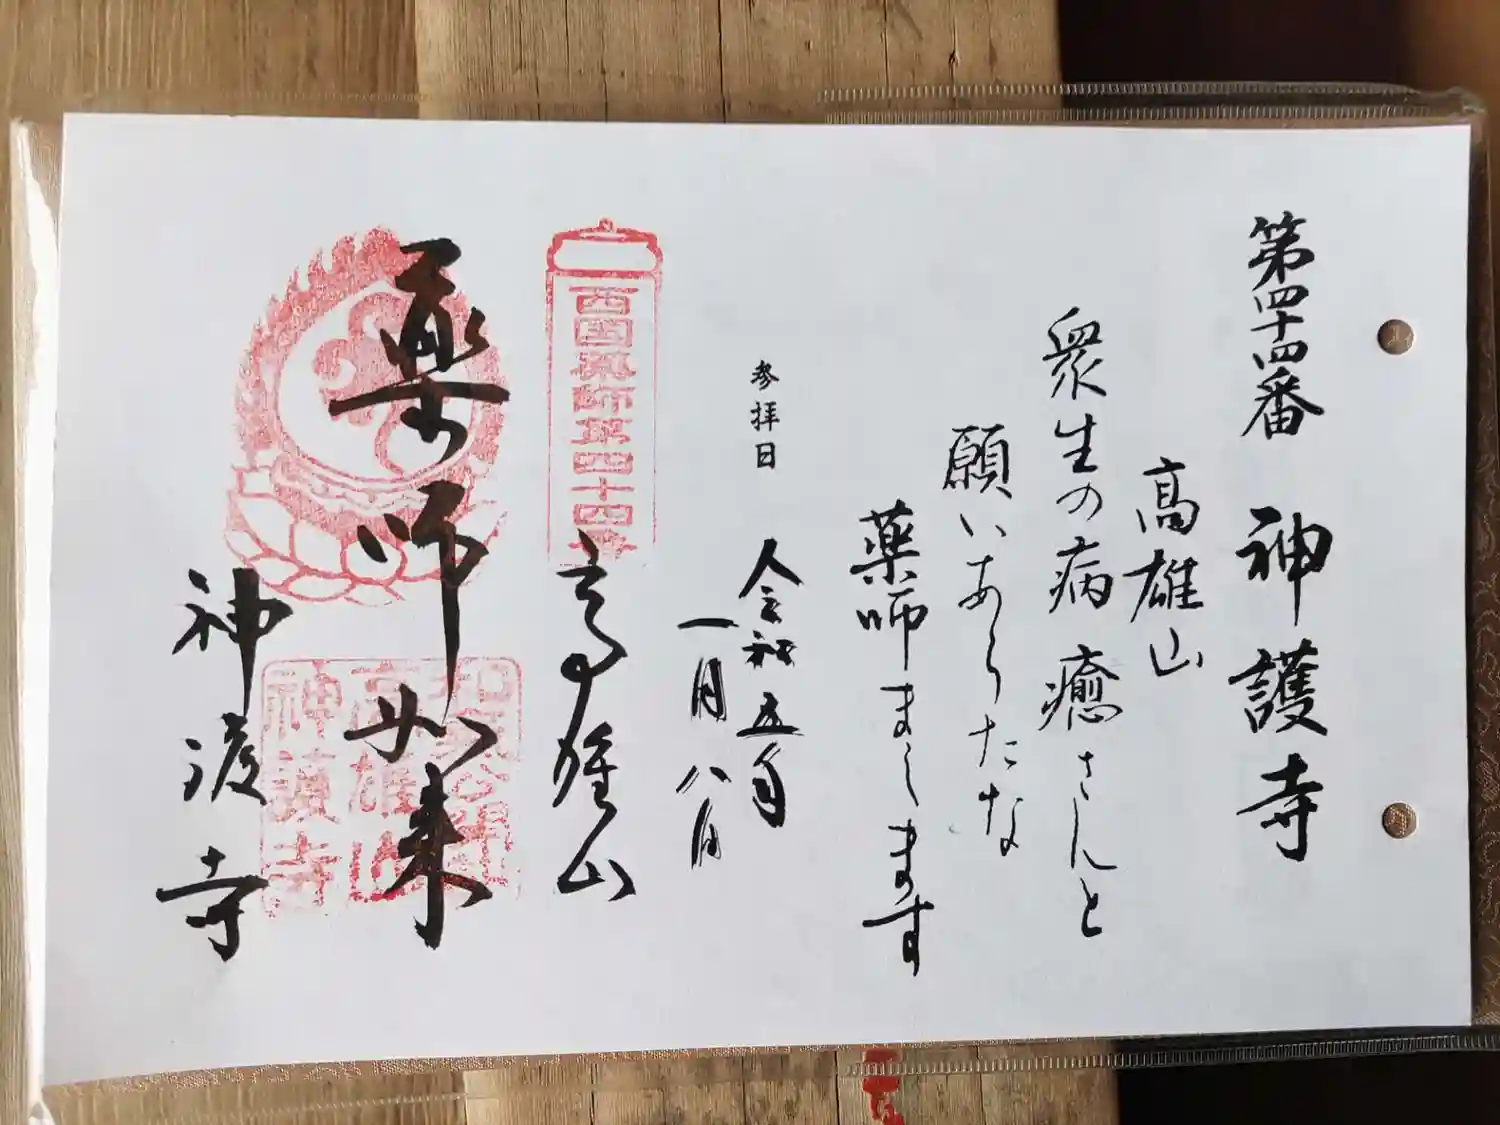 第四十四番 神護寺
高雄山
衆生の病癒さんと
願いあらたな
薬师まします
参拝日 令和五年
一月八日
西國薬師第四十四番
高雄山
薬师如来
神護寺
高雄山
神護寺